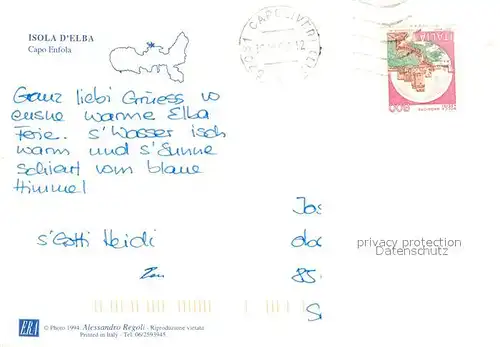 ISOLA D'ELBA
Capo Enfola
57031 CAPOLIVERI
ITALIA
Ganz liebi Grüess vo
eusne warme Elba
Ferie. s'Wasser isch
warm und s'Sunne
schient vom blaue
Himmel
s'Gotti Heidi
Jos
85
privacy protection
Datenschutz
ERA
© Photo 1994 Alessandro Regoli - Riproduzione vietata
Printed in Italy - Tel. 06/2593945